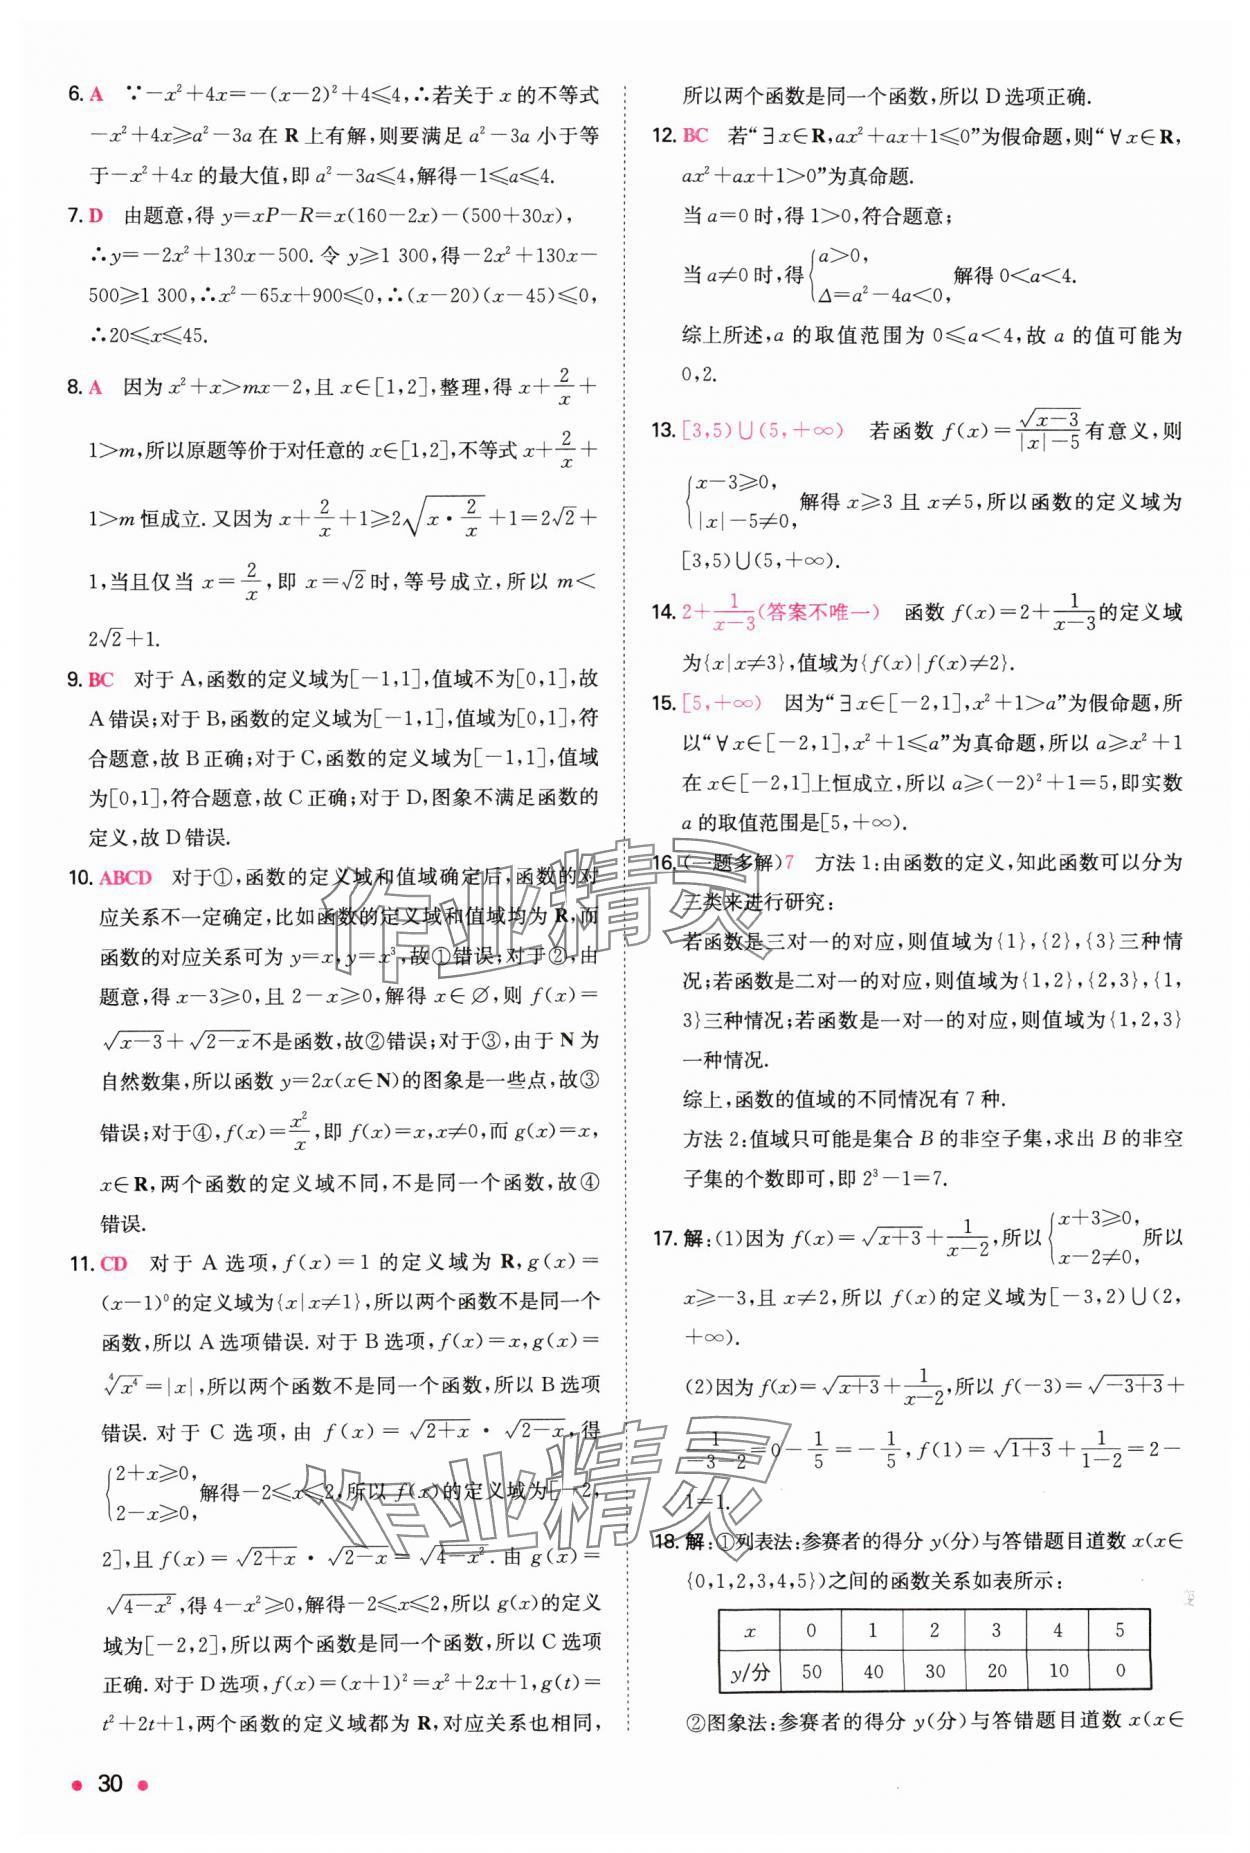 6. A ∵−x²+4x=−(x−2)²+4≤4,∴若关于 x 的不等式
−x²+4x≥a²−3a 在 R 上有解,则要满足 a²−3a 小于等
于−x²+4x 的最大值,即 a²−3a≤4,解得−1≤a≤4.
7. D 由题意,得 y=xP−R=x(160−2x)−(500+30x),
∴y=−2x²+130x−500. 令 y≥1 300,得−2x²+130x−
500≥1 300,∴x²−65x+900≤0,∴(x−20)(x−45)≤0,
∴20≤x≤45.
8. A 因为 x²+x>mx−2,且 x∈[1,2],整理,得 x+2/x+
1>m,所以原题等价于对任意的 x∈[1,2],不等式 x+2/x+
1>m 恒成立. 又因为 x+2/x+1≥2√(x·2/x)+1=2√2+
1,当且仅当 x=2/x,即 x=√2时,等号成立,所以 m<
2√2+1.
9. BC 对于 A,函数的定义域为[−1,1],值域不为[0,1],故
A 错误;对于 B,函数的定义域为[−1,1],值域为[0,1],符
合题意,故 B 正确;对于 C,函数的定义域为[−1,1],值域
为[0,1],符合题意,故 C 正确;对于 D,图象不满足函数的
定义,故 D 错误.
10. ABCD 对于①,函数的定义域和值域确定后,函数的对
应关系不一定确定,比如函数的定义域和值域均为 R,而
函数的对应关系可为 y=x,y=x³,故①错误;对于②,由
题意,得 x−3≥0,且 2−x≥0,解得 x∈∅,则 f(x)=
√(x−3)+√(2−x)不是函数,故②错误;对于③,由于 N 为
自然数集,所以函数 y=2x(x∈N)的图象是一些点,故③
错误;对于④,f(x)=x²/x,即 f(x)=x,x≠0,而 g(x)=x,
x∈R,两个函数的定义域不同,不是同一个函数,故④
错误.
11. CD 对于 A 选项,f(x)=1 的定义域为 R,g(x)=
(x−1)⁰的定义域为{x|x≠1},所以两个函数不是同一个
函数,所以 A 选项错误. 对于 B 选项,f(x)=x,g(x)=
⁴√x⁴=|x|,所以两个函数不是同一个函数,所以 B 选项
错误. 对于 C 选项,由 f(x)=√(2+x)·√(2−x),得
{2+x≥0, 2−x≥0, 解得−2≤x≤2,所以 f(x)的定义域为[−2,
2],且 f(x)=√(2+x)·√(2−x)=√(4−x²). 由 g(x)=
√(4−x²),得 4−x²≥0,解得−2≤x≤2,所以 g(x)的定义
域为[−2,2],所以两个函数是同一个函数,所以 C 选项
正确. 对于 D 选项,f(x)=(x+1)²=x²+2x+1,g(t)=
t²+2t+1,两个函数的定义域都为 R,对应关系也相同,
30
所以两个函数是同一个函数,所以 D 选项正确.
12. BC 若“∃x∈R,ax²+ax+1≤0”为假命题,则“∀x∈R,
ax²+ax+1>0”为真命题.
当 a=0 时,得 1>0,符合题意;
当 a≠0 时,得{a>0, Δ=a²−4a<0, 解得 0<a<4.
综上所述,a 的取值范围为 0≤a<4,故 a 的值可能为
0,2.
13. [3,5)∪(5,+∞) 若函数 f(x)=√(x−3)/(|x|−5)有意义,则
{x−3≥0, |x|−5≠0, 解得 x≥3 且 x≠5,所以函数的定义域为
[3,5)∪(5,+∞).
14. 2+1/(x−3)(答案不唯一) 函数 f(x)=2+1/(x−3)的定义域
为{x|x≠3},值域为{f(x)|f(x)≠2}.
15. [5,+∞) 因为“∃x∈[−2,1],x²+1>a”为假命题,所
以“∀x∈[−2,1],x²+1≤a”为真命题,所以 a≥x²+1
在 x∈[−2,1]上恒成立,所以 a≥(−2)²+1=5,即实数
a 的取值范围是[5,+∞).
16. (一题多解)7 方法 1:由函数的定义,知此函数可以分为
三类来进行研究:
若函数是三对一的对应,则值域为{1},{2},{3}三种情
况;若函数是二对一的对应,则值域为{1,2},{2,3},{1,
3}三种情况;若函数是一对一的对应,则值域为{1,2,3}
一种情况.
综上,函数的值域的不同情况有 7 种.
方法 2:值域只可能是集合 B 的非空子集,求出 B 的非空
子集的个数即可,即 2³−1=7.
17. 解:(1)因为 f(x)=√(x+3)+1/(x−2),所以{x+3≥0, x−2≠0, 所以
x≥−3,且 x≠2,所以 f(x)的定义域为[−3,2)∪(2,
+∞).
(2)因为 f(x)=√(x+3)+1/(x−2),所以 f(−3)=√(−3+3)+
1/(−3−2)=0−1/5=−1/5,f(1)=√(1+3)+1/(1−2)=2−
1=1.
18. 解:①列表法:参赛者的得分 y(分)与答错题目道数 x(x∈
{0,1,2,3,4,5})之间的函数关系如表所示:
x 0 1 2 3 4 5
y/分 50 40 30 20 10 0
②图象法:参赛者的得分 y(分)与答错题目道数 x(x∈
作业精灵
作业精灵